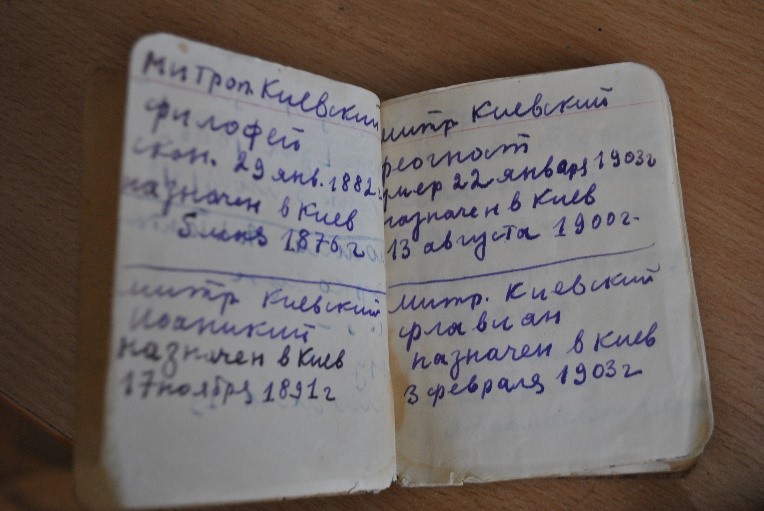 Митроп. Киевский
филофей
скон. 29 янв. 1882 г
назначен в Киев
1876 г
митр Киевский
Иоаникий
назначен в Киев
17 ноября 1891 г
митр Киевский
феогност
умер 22 января 1903 г
назначен в Киев
13 августа 1900 г.
Митр. Киевский
флавиан
назначен в Киев
3 февраля 1903 г